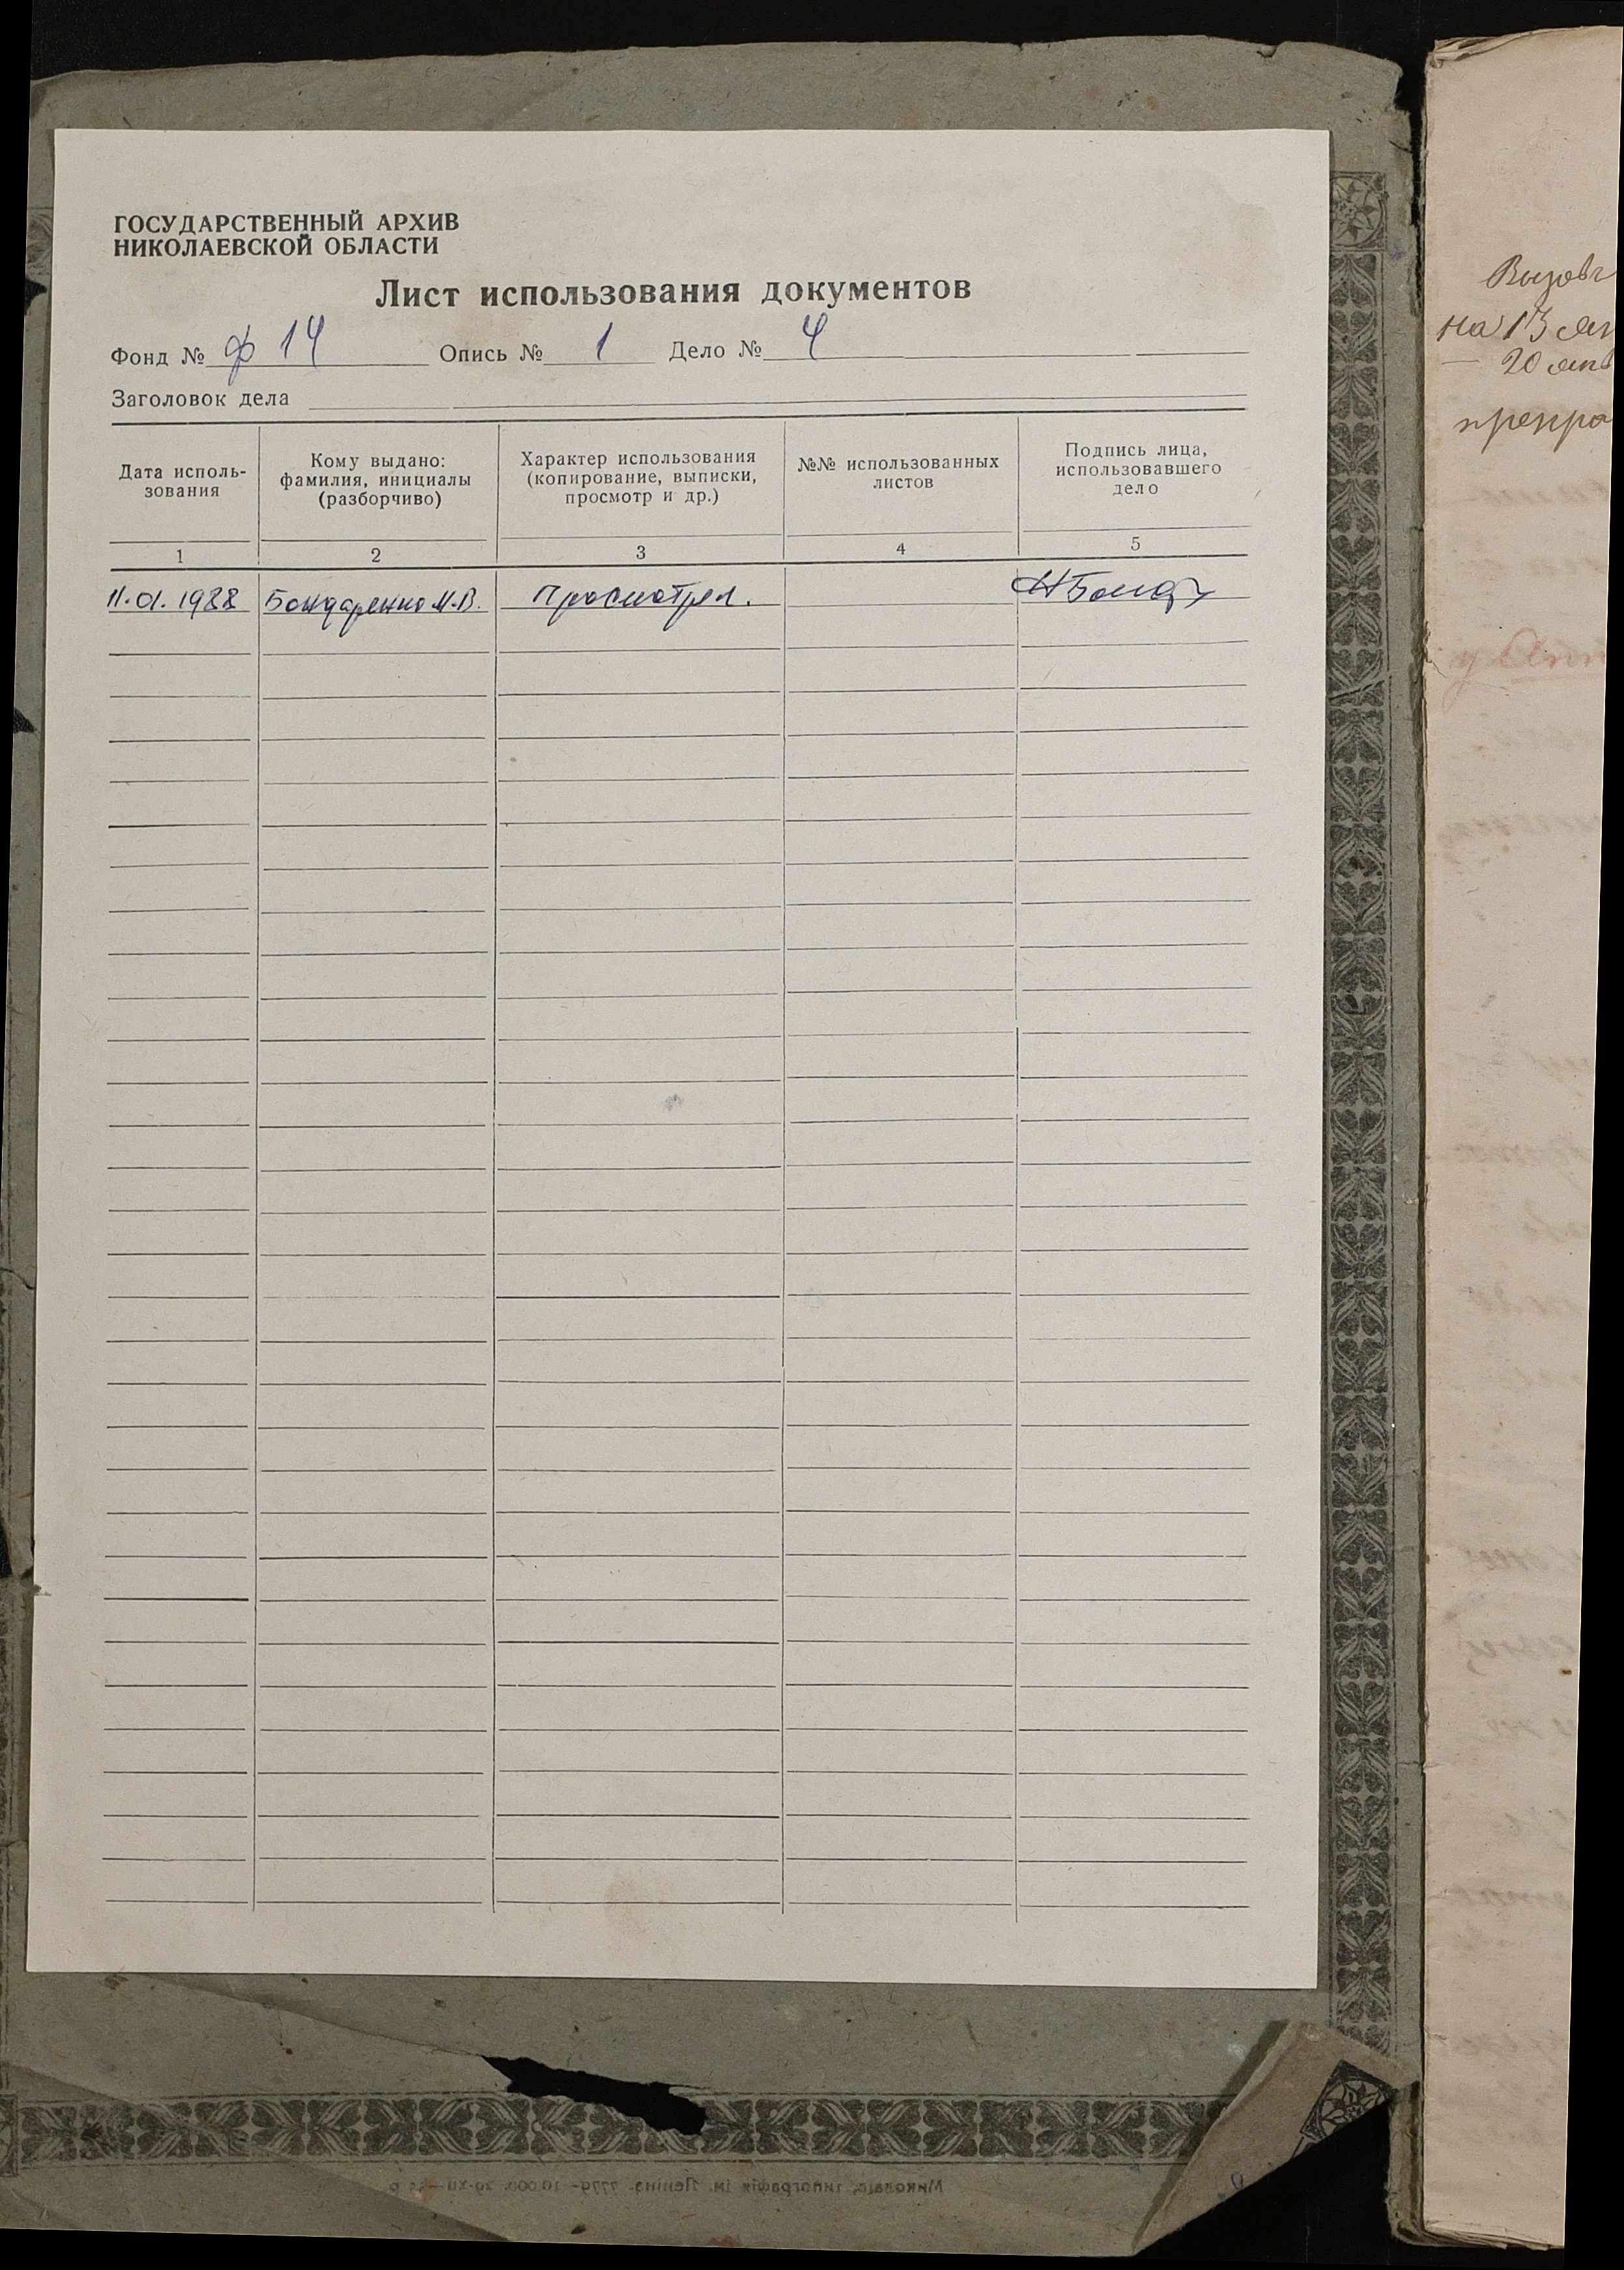 ГОСУДАРСТВЕННЫЙ АРХИВ
НИКОЛАЕВСКОЙ ОБЛАСТИ
Лист использования документов
Фонд № ф 14 Опись № 1 Дело № 4
Заголовок дела
Дата исполь-
зования
Кому выдано:
фамилия, инициалы
(разборчиво)
Характер использования
(копирование, выписки,
просмотр и др.)
№№ использованных
листов
Подпись лица,
использовавшего
дело
1 2 3 4 5
11.01.1988 Бондаренко Н.В. Просмотрел.
на 13
20 янв
Миколаїв, типографія ім. Леніна. 7779—10.000.